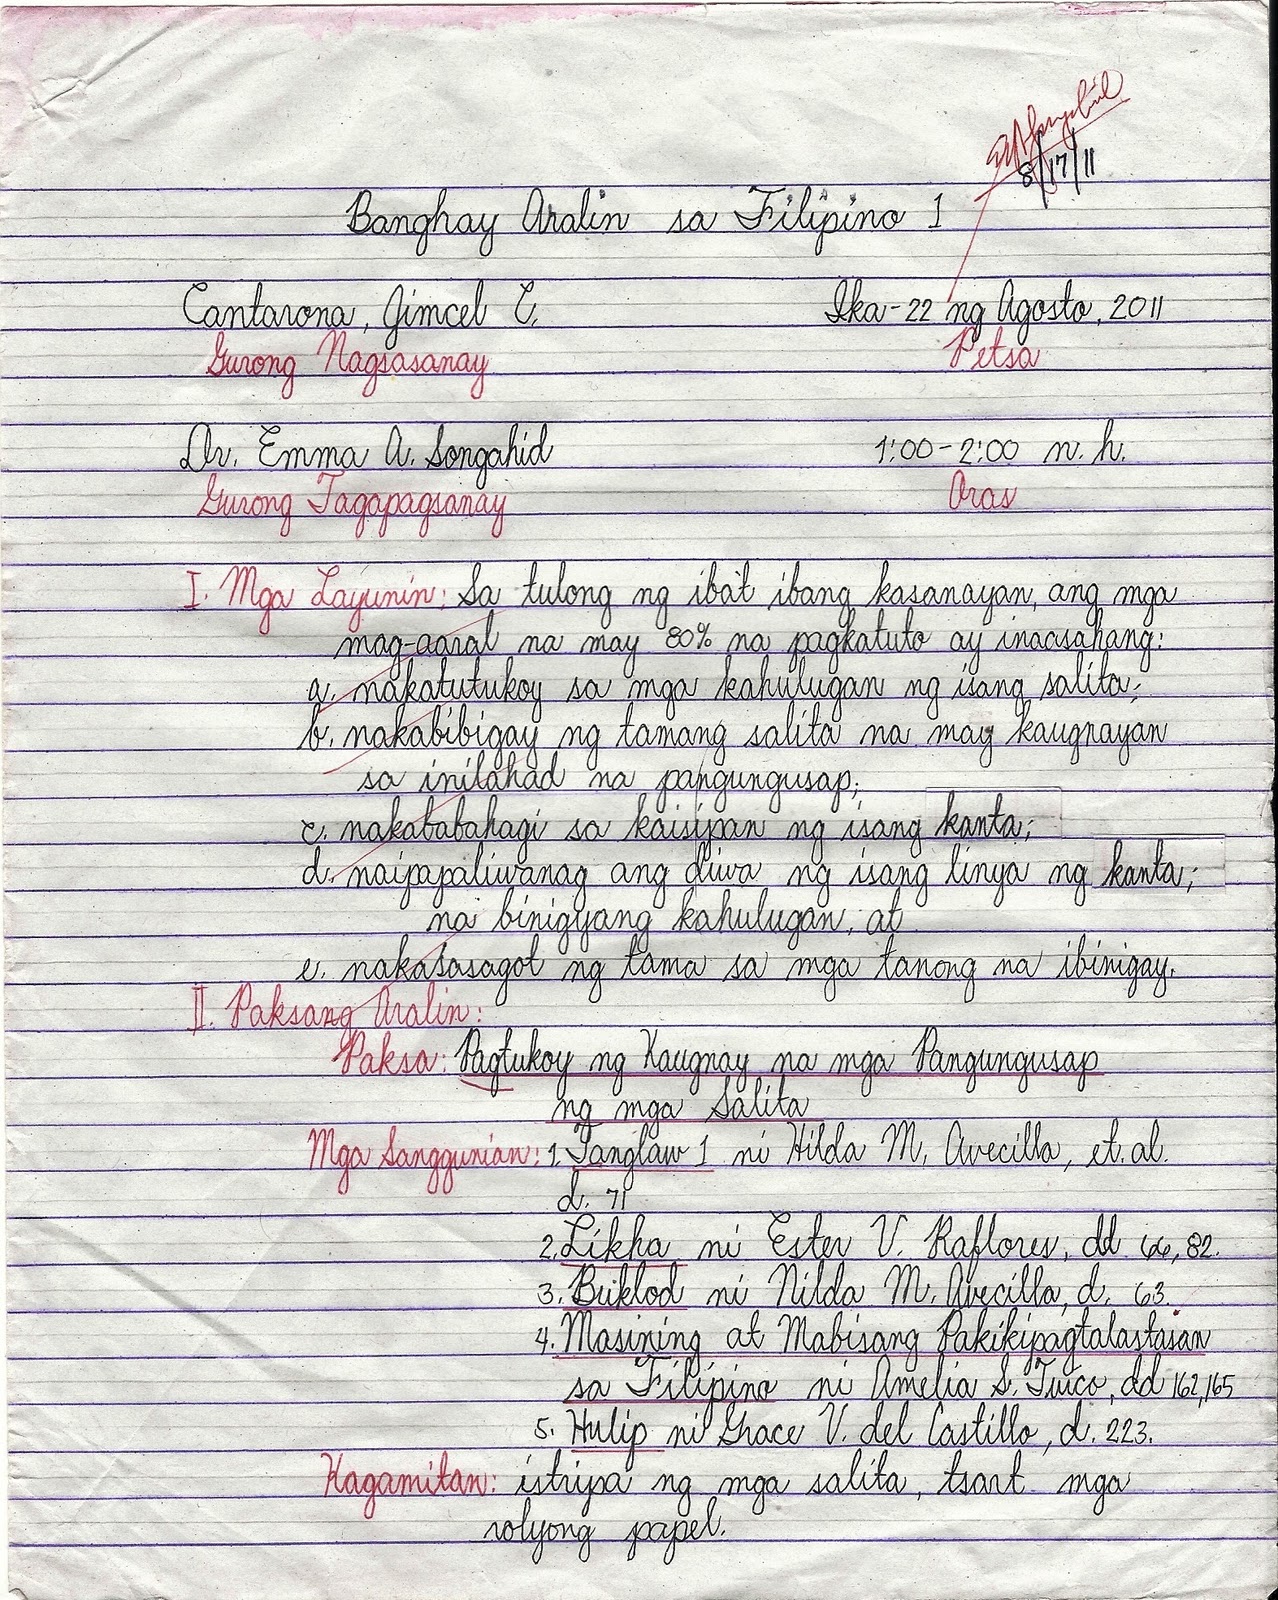 8/17/11
Banghay Aralin sa Filipino 1
Cantarona, Jimcel C. Ika-22 ng Agosto, 2011
Gurong Nagsasanay Petsa
Dr. Emma A. Songahid 1:00-2:00 n.h.
Gurong Tagapagsanay Oras
I. Mga Layunin: Sa tulong ng iba't ibang kasanayan, ang mga
mag-aaral na may 80% na pagkatuto ay inaasahang:
a. nakatutukoy sa mga kahulugan ng isang salita;
b. nakabibigay ng tamang salita na may kaugnayan
sa inilahad na pangungusap;
c. nakababahagi sa kaisipan ng isang kanta;
d. naipapaliwanag ang diwa ng isang linya ng kanta;
na binigyang kahulugan, at
e. nakasasagot ng tama sa mga tanong na ibinigay.
II. Paksang Aralin:
Paksa: Pagtukoy ng Kaugnay na mga Pangungusap
ng mga Salita
Mga Sanggunian: 1. Tanglaw 1 ni Hilda M. Avecilla, et. al.
d. 71
2. Likha ni Ester V. Raflores, dd 66, 82.
3. Buklod ni Nilda M. Avecilla, d. 63.
4. Masining at Mabisang Pakikipagtalastasan
sa Filipino ni Amelia S. Tuico, dd 162,165
5. Hulip ni Grace V. del Castillo, d. 223.
Kagamitan: istripa ng mga salita, tsart mga
rolyong papel.